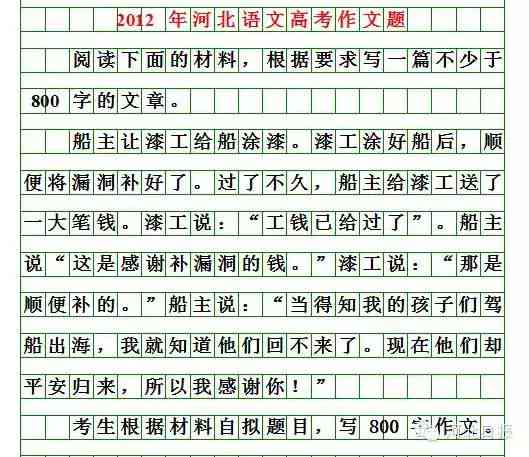 2012 年河北语文高考作文题
阅读下面的材料，根据要求写一篇不少于
800 字的文章。
船主让漆工给船涂漆。漆工涂好船后，顺
便将漏洞补好了。过了不久，船主给漆工送了
一大笔钱。漆工说：“工钱已给过了”。船主
说“这是感谢补漏洞的钱。”漆工说：“那是
顺便补的。”船主说：“当得知我的孩子们驾
船出海，我就知道他们回不来了。现在他们却
平安归来，所以我感谢你！”
考生根据材料自拟题目，写 800 字作文。